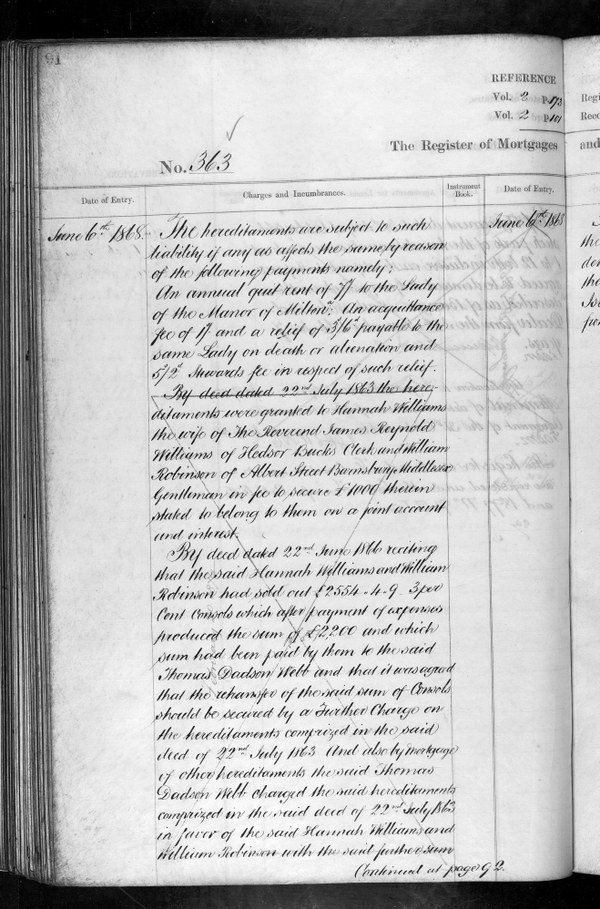 91
REFERENCE
Vol. 2 P 173
Vol. 2 P 101
The Register of Mortgages
and
No. 363
Date of Entry.
Charges and Incumbrances.
Instrument Book.
Date of Entry.
June 6th 1868.
June 6th 1868
The hereditaments are subject to such
liability if any as affects the same by reason
of the following payments namely;
An annual quit rent of to the Lady
of the Manor of Milton: An acquittance
fee of and a relief of 3/6 payable to the
same Lady on death or alienation and
5/2 stewards fee in respect of such relief.
By deed dated 22nd July 1863 the here-
ditaments were granted to Hannah Williams
the wife of The Reverend James Reynold
Williams of Hedsor Bucks Clerk and William
Robinson of Albert Street Barnsbury Middlesex
Gentleman in fee to secure £1000 therein
stated to belong to them on a joint account
and interest.
By deed dated 22nd June 1866 reciting
that the said Hannah Williams and William
Robinson had sold out £2554.4.9 3 per
Cent Consols which after payment of expenses
produced the sum of £2,200 and which
sum had been paid by them to the said
Thomas Dadson Webb and that it was agreed
that the retransfer of the said sum of Consols
should be secured by a Further Charge on
the hereditaments comprized in the said
deed of 22nd July 1863 And also by mortgage
of other hereditaments the said Thomas
Dadson Webb charged the said hereditaments
comprized in the said deed of 22nd July 1863
in favor of the said Hannah Williams and
William Robinson with the said further sum
Continued at page 92.